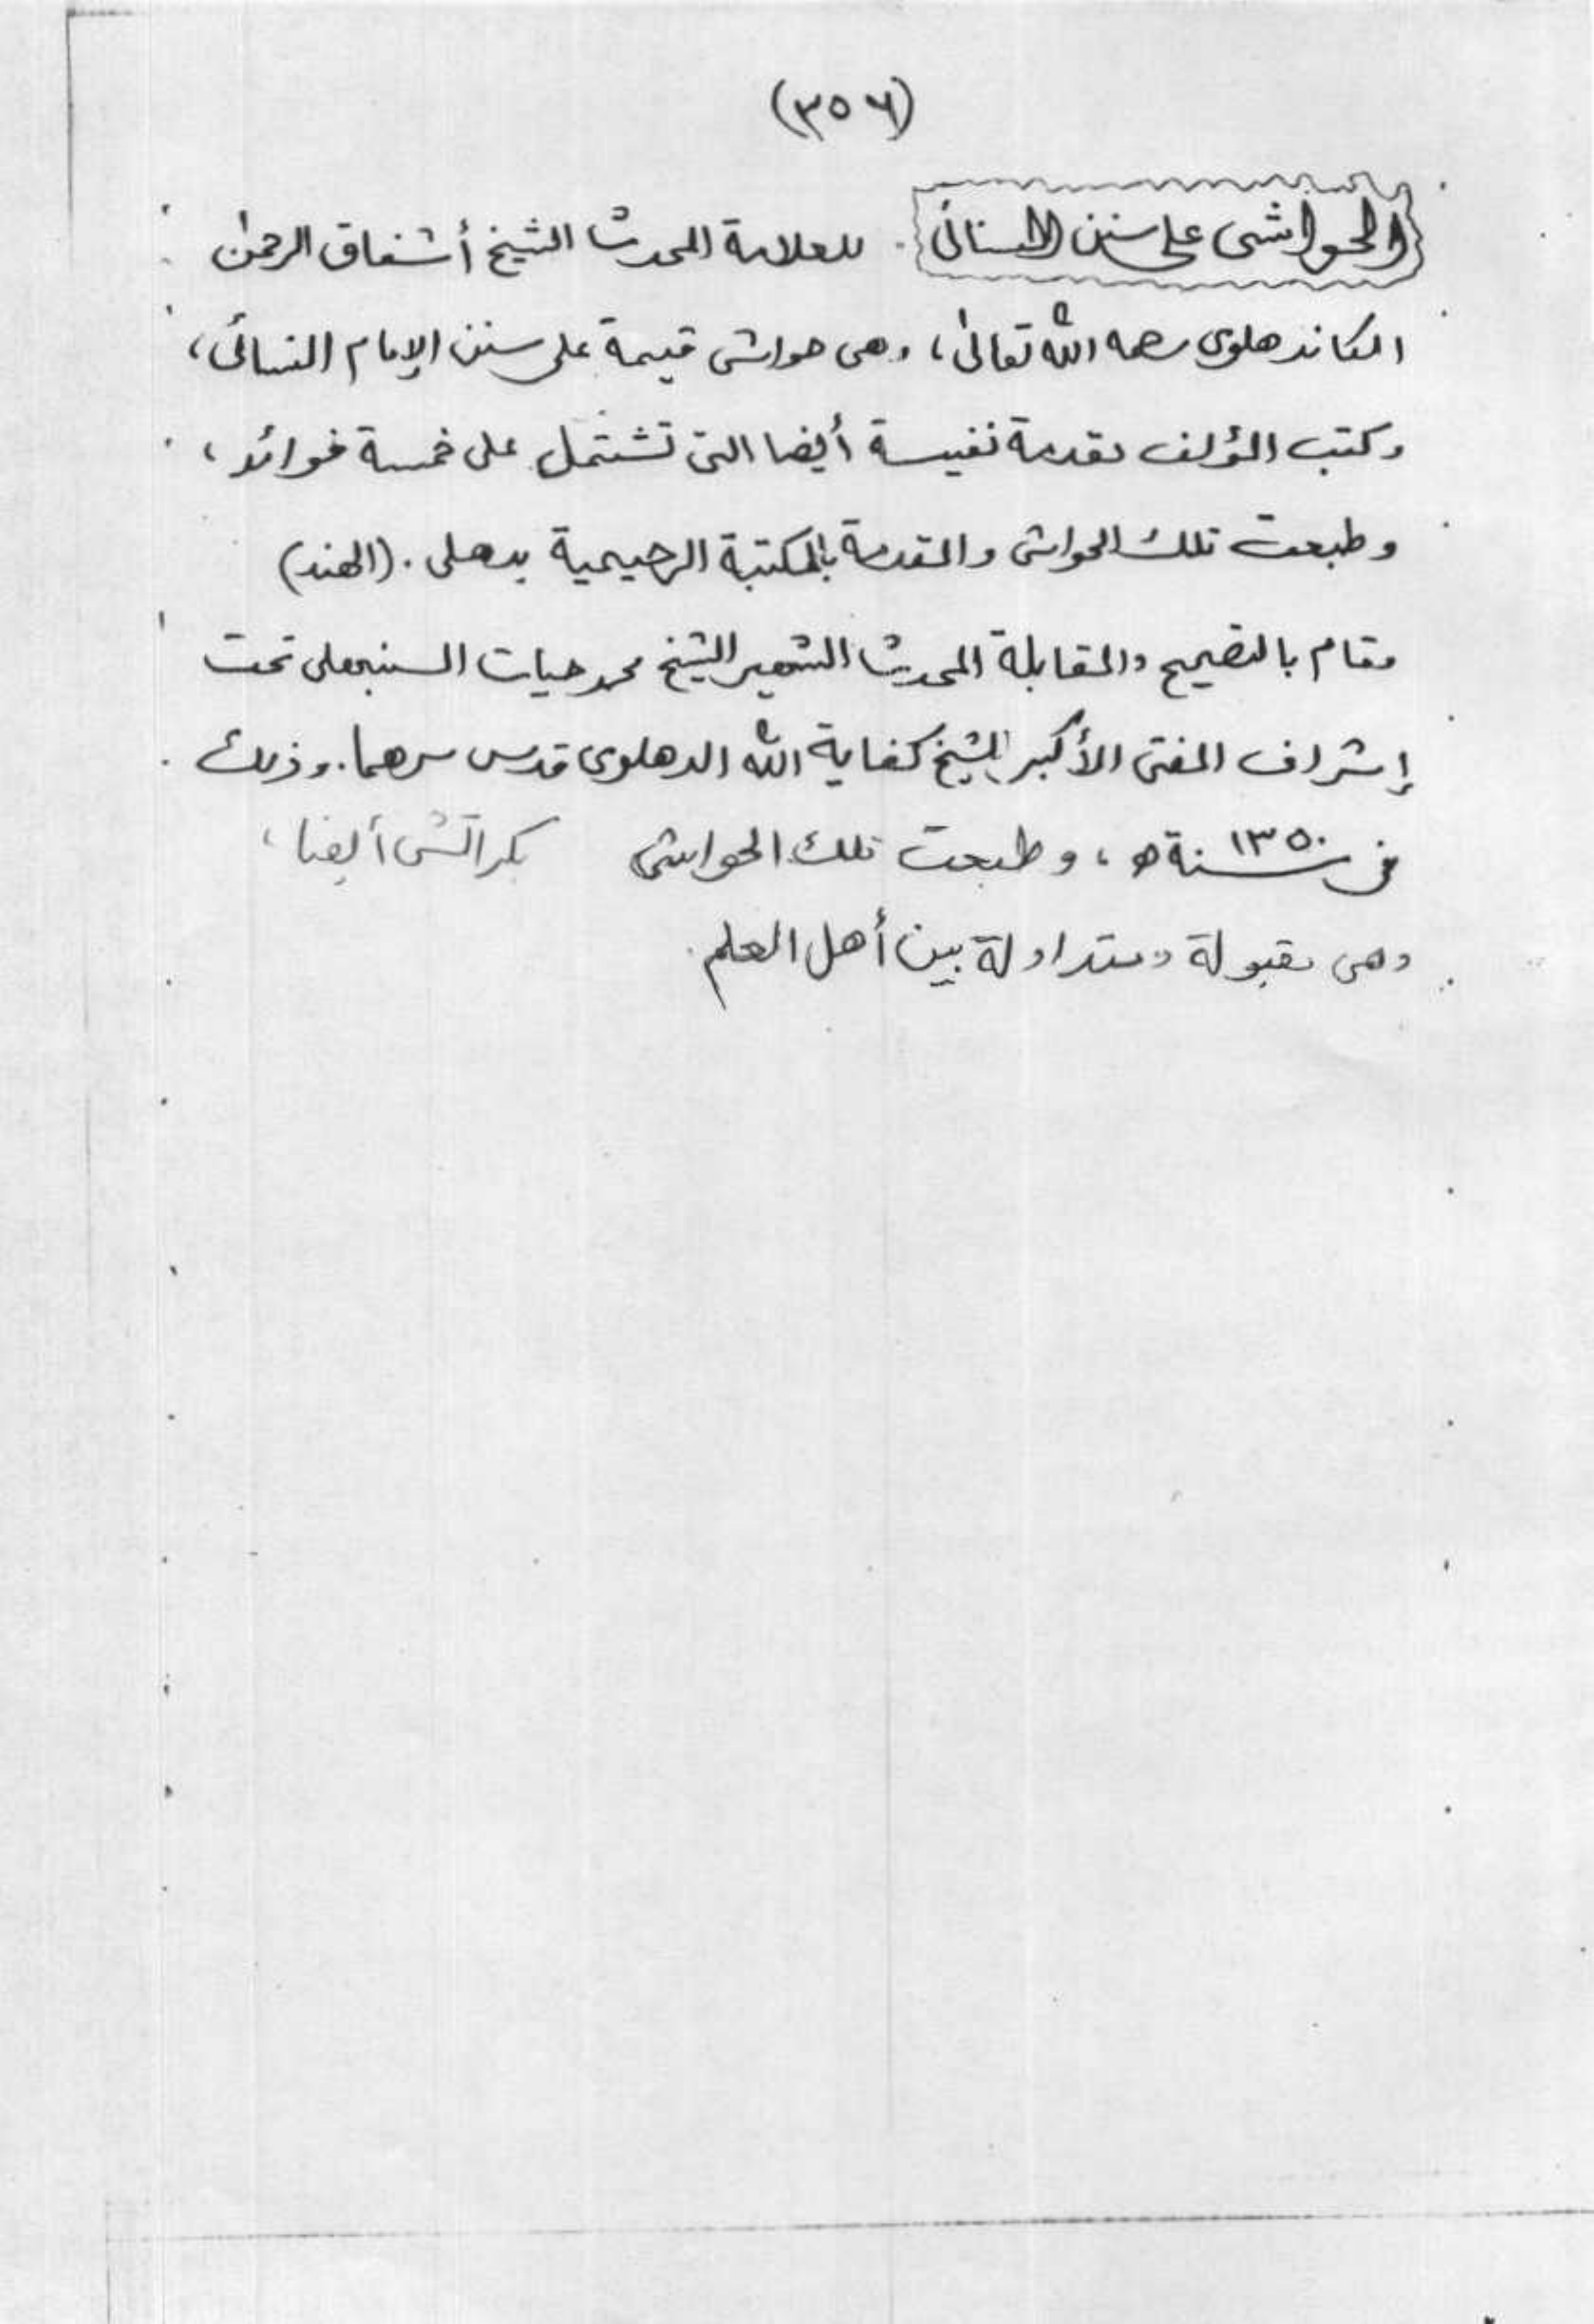 (٣٥٦)
الحواشى على سنن النسائى. للعلامة المحدث الشيخ أشفاق الرحمٰن
الكاندهلوى رحمه الله تعالىٰ، وهى حواشى قيمة على سنن الإمام النسائى،
وكتب المؤلف مقدمة نفيسة أيضا التى تشتمل على خمسة فوائد،
وطبعت تلك الحواشى والمقدمة بالمكتبة الرحيمية بدهلى. (الهند)
وقام بالتصحيح والمقابلة المحدث الشهير الشيخ محمد حيات السنبهلى تحت
إشراف المفتى الأكبر الشيخ كفاية الله الدهلوى قدس سرهما. وذلك
فى سنة ١٣٥٠ه، وطبعت تلك الحواشى بكراتشى أيضا،
وهى مقبولة ومتداولة بين أهل العلم.